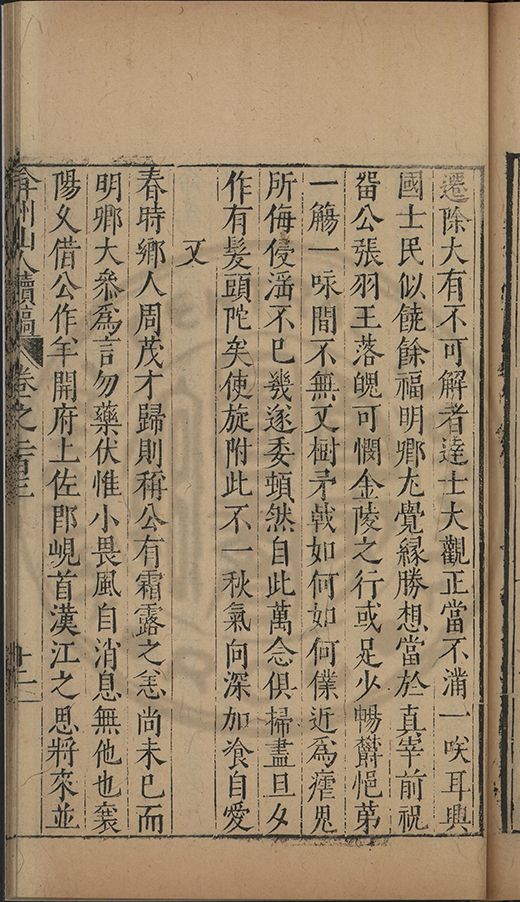 遷除大有不可解者達士大觀正當不滿一咲耳與
國士民似饒餘福明鄉尤覺緣勝想當於真宰前祝
畱公張羽王落魄可憫金陵之行或足少暢欝悒苐
一觴一咏間不無又樹矛戟如何如何僕近為瘧鬼
所侮侵滛不已幾遂委頓然自此萬念俱掃盡旦夕
作有髮頭陀矣使旋附此不一秋氣向深加飡自愛
又
春時鄉人周茂才歸則稱公有霜露之恙尚未已而
明卿大叅為言勿藥伏惟小畏風自消息無他也襄
陽乂借公作年開府上佐郎峴首漢江之思將來並
弇州山人續稿 卷之 十二